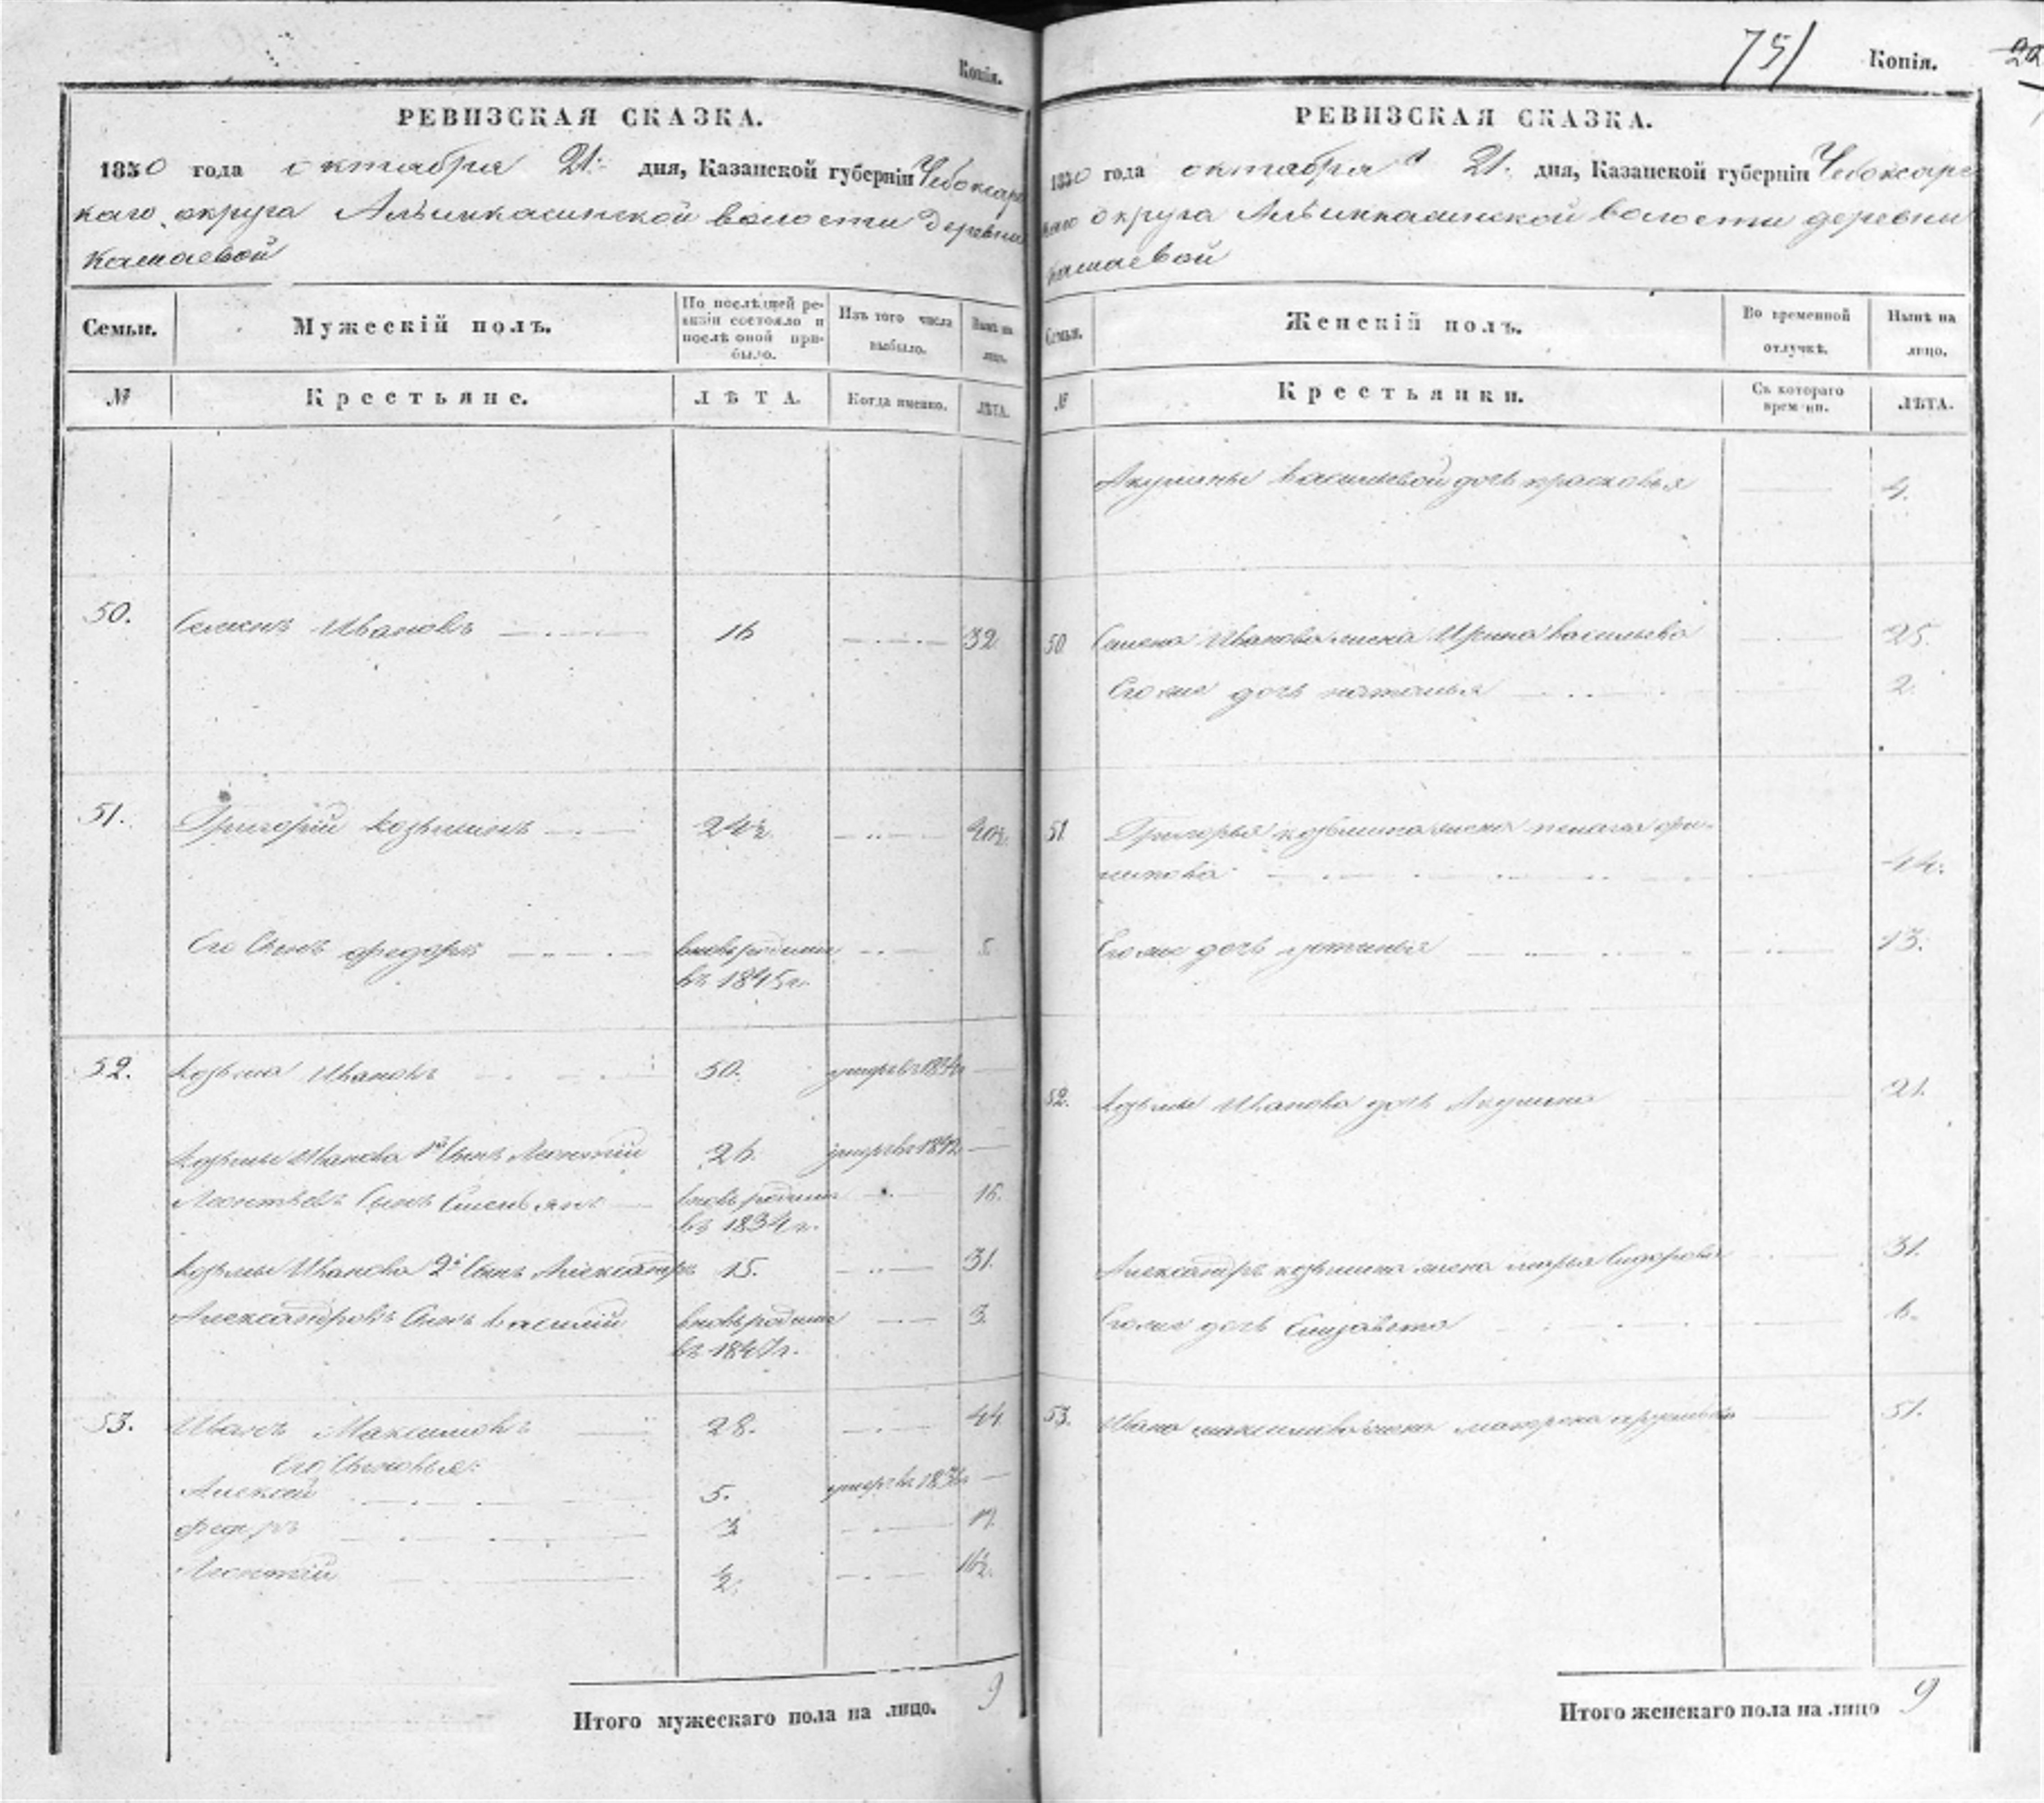 Копія.
РЕВИЗСКАЯ СКАЗКА.
1850 года октября 21. дня, Казанской губерніи Чебоксар
каго округа Алымкасинской волости деревни
Камаевой
Семьи.
Мужескій полъ.
По послѣдней ре-
визіи состояло и
послѣ оной при-
было.
Изъ того числа
выбыло.
Нынѣ на
лицо.
№
Крестьяне.
ЛѢТА.
Когда именно.
ЛѢТА.
50. Семенъ Ивановъ 16 32
51. Григорій Козьминъ 24½
Его Сынъ Федоръ вновь рожден 5
въ 1845 г.
52. Козьма Ивановъ 50.
Козьмы Иванова 1й Сынъ Леонтій 26.
Леонтьевъ Сынъ Емельянъ вновь рожден 16.
въ 1834 г.
Козьмы Иванова 2й Сынъ Александръ 15. 31.
Александровъ Сынъ Василій вновь рожден 3
въ 1847 г.
53. Иванъ Максимовъ 28. 44
Его Сыновья:
Алексѣй 5.
Федоръ 3
Леонтій ½ 16½
Итого мужескаго пола на лицо. 9
751
Копія.
РЕВИЗСКАЯ СКАЗКА.
1850 года октября 21. дня, Казанской губерніи Чебоксарс
каго округа Алымкасинской волости деревни
Камаевой
Семьи.
Женскій полъ.
Во временной
отлучкѣ.
Нынѣ на
лицо.
№
Крестьянки.
Съ котораго
времени.
ЛѢТА.
Акулины Васильевой дочь Прасковья 4.
50 Семена Иванова жена Ирина Васильева 25.
Его же дочь Наталья 2.
51 Григорья Козьмина жена
44.
Его же дочь Устинья 13.
52. Козьмы Иванова дочь Акулина 21.
Александръ Козьмина жена Марья Сидорова 31.
Его же дочь Елизавета 6.
53. Ивана Максимова жена Матрена 51.
Итого женскаго пола на лицо 9